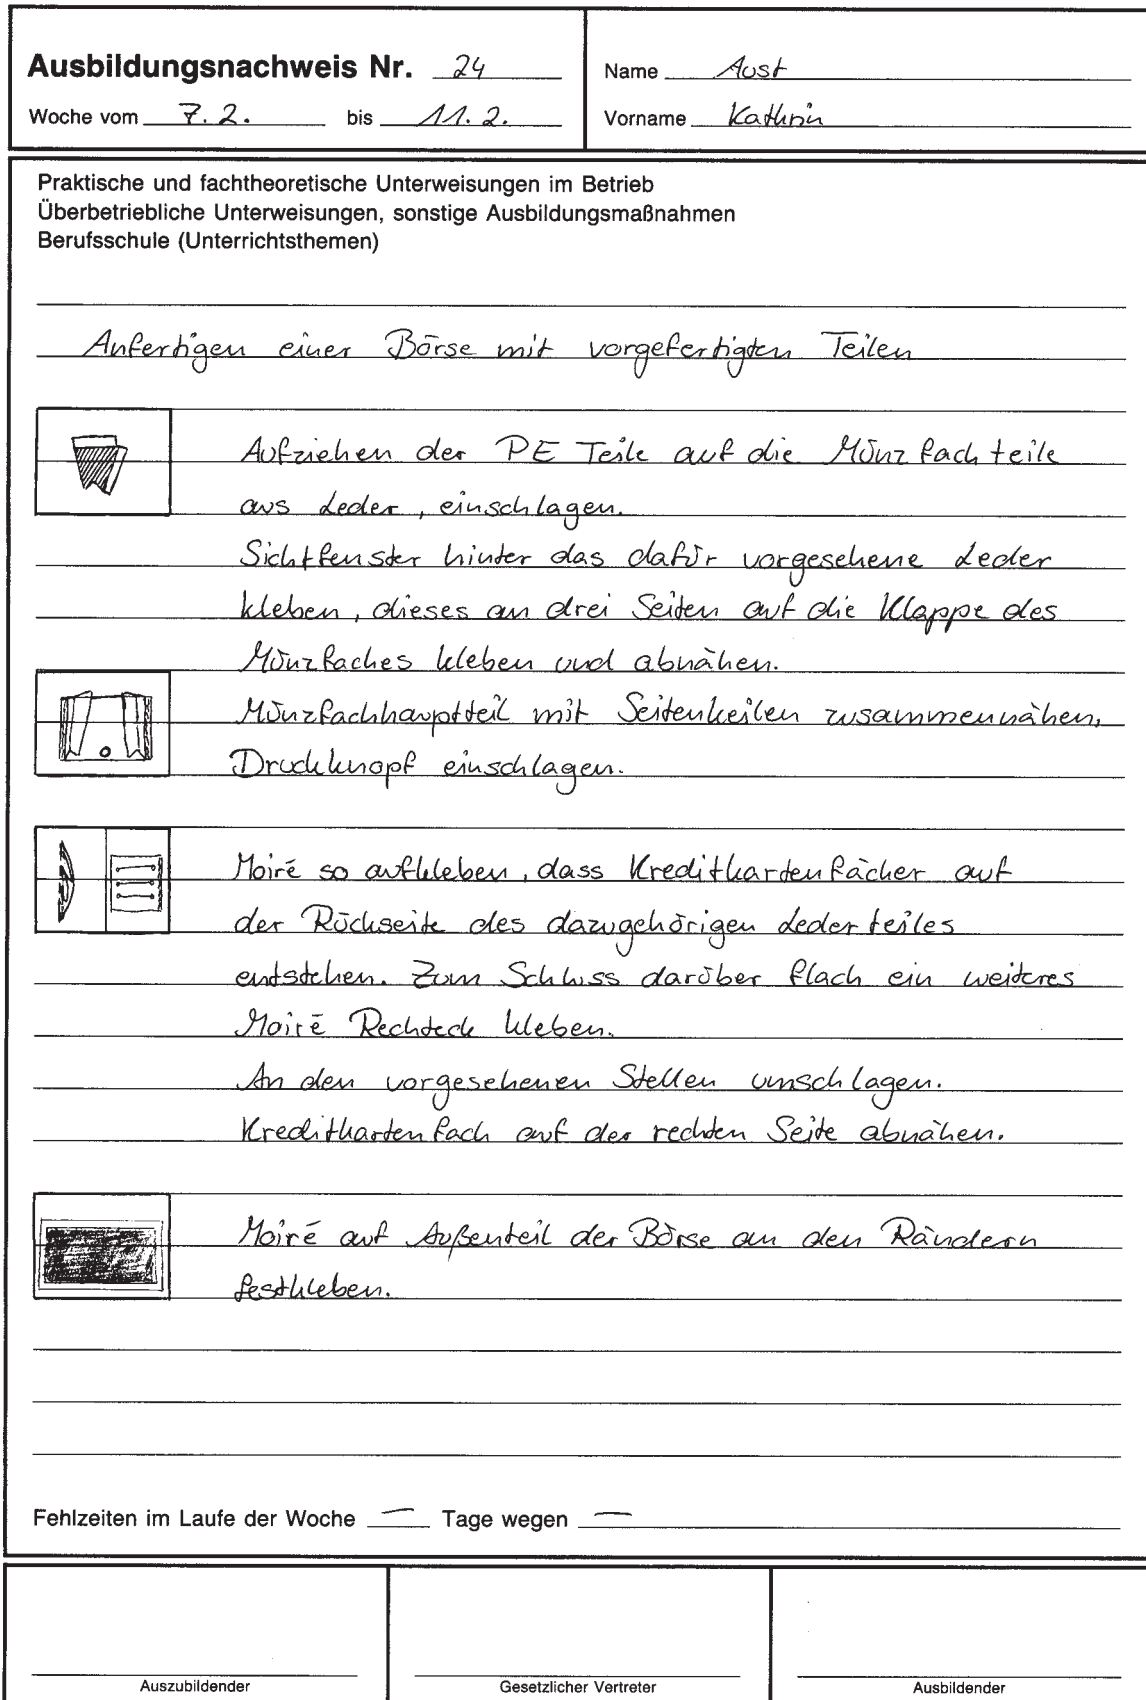 Ausbildungsnachweis Nr. 24
Woche vom 7.2. bis 11.2.
Name Aust
Vorname Kathrin
Praktische und fachtheoretische Unterweisungen im Betrieb
Überbetriebliche Unterweisungen, sonstige Ausbildungsmaßnahmen
Berufsschule (Unterrichtsthemen)
Anfertigen einer Börse mit vorgefertigten Teilen
Aufziehen der PE Teile auf die Münzfachteile
aus Leder, einschlagen.
Sichtfenster hinter das dafür vorgesehene Leder
kleben, dieses an drei Seiten auf die Klappe des
Münzfaches kleben und abnähen.
Münzfachhauptteil mit Seitenkeilen zusammennähen,
Druckknopf einschlagen.
Moiré so aufkleben, dass Kreditkartenfächer auf
der Rückseite des dazugehörigen Lederteiles
entstehen. Zum Schluss darüber flach ein weiteres
Moiré Rechteck kleben.
An den vorgesehenen Stellen umschlagen.
Kreditkartenfach auf der rechten Seite abnähen.
Moiré auf Außenteil der Börse an den Rändern
festkleben.
Fehlzeiten im Laufe der Woche — Tage wegen —
Auszubildender
Gesetzlicher Vertreter
Ausbildender